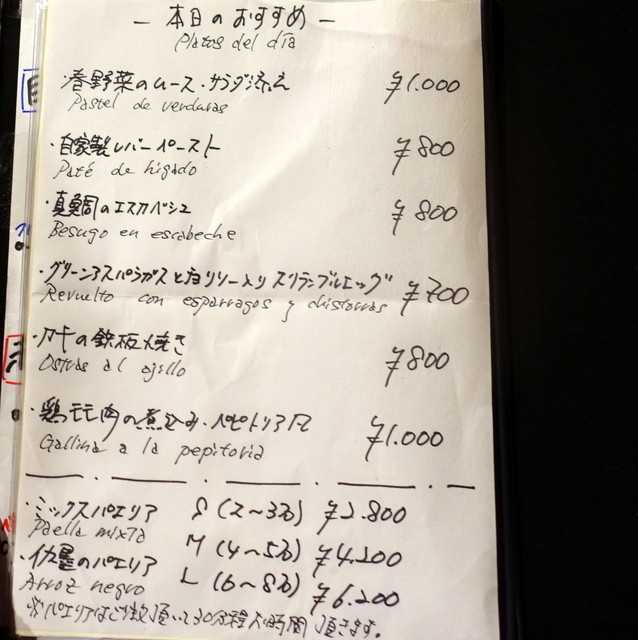 — 本日のおすすめ —
Platos del día
・春野菜のムース・サラダ添え ¥1.000
Pastel de verduras
・自家製レバーペースト ¥800
Paté de higado
・真鯛のエスカベシュ ¥800
Besugo en escabeche
・グリーンアスパラガスとチョリソー入りスクランブルエッグ ¥700
Revuelto con esparragos y chistorras
・カキの鉄板焼き ¥800
Ostras al ajillo
・鶏モモ肉の煮込み・ペピトリア風 ¥1.000
Gallina a la pepitoria
・ミックスパエリア S (2〜3名) ¥2.800
Paella mixta M (4〜5名) ¥4.200
・イカ墨のパエリア L (6〜8名) ¥6.200
Arroz negro
※パエリアはご注文頂いて30分程お時間頂きます。